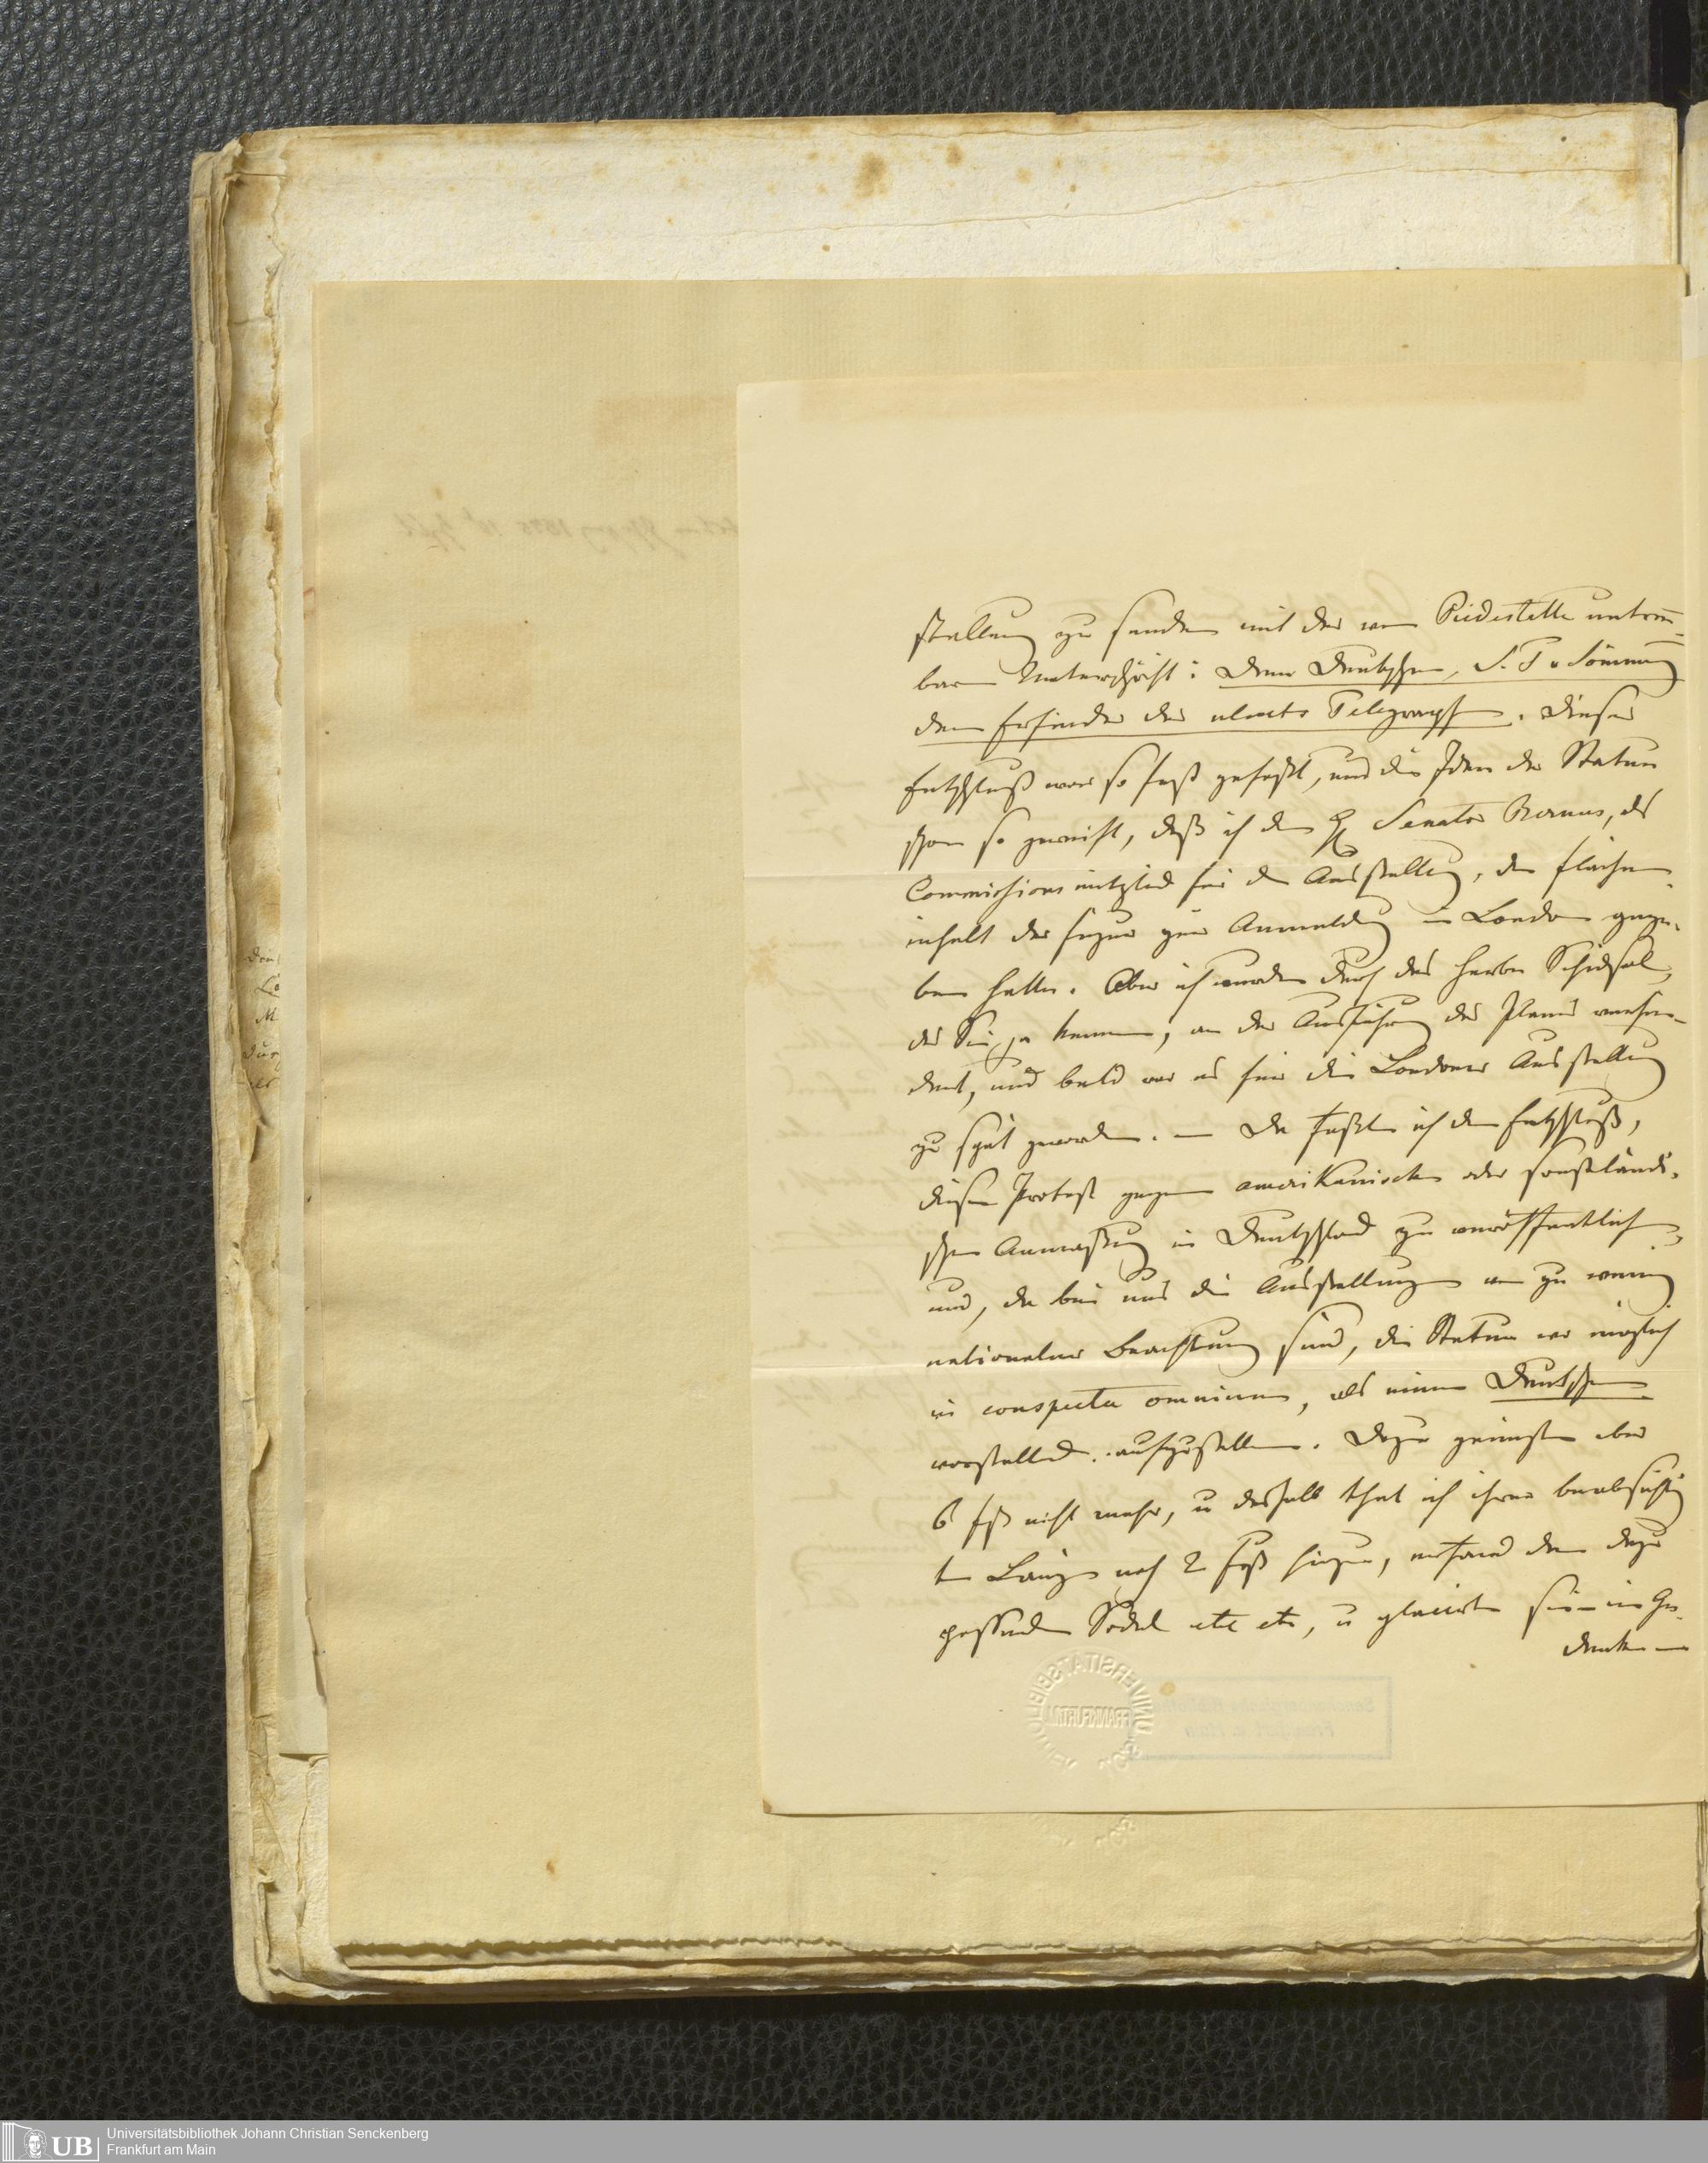 stellung zu senden mit der vom Piedestelle untrenn-
baren Unterschrift: Dem Deutschen, S. T. v Sömmering
dem Erfinder des electr Telegraphen. Dieser
Entschluß war so fest gefaßt, und die Idee der Statue
schon so gereift, daß ich dem H Senator Bernus, als
Commissionsmitglied für die Ausstellung, den Flächen-
inhalt der Figur zur Anmeldung in London gege-
ben hatte. Aber ich wurde durch das herbe Schicksal,
das Sie ja kennen, an der Ausführung des Planes verhin-
dert, und bald war es für die Londoner Ausstellung
zu spät geworden. – Da faßte ich den Entschluß,
diesen Protest gegen amerikanische oder sonstländi-
schen Anmaßung in Deutschland zu veröffentlichen
und, da bei uns die Ausstellungen von zu wenig
nationaler Beachtung sind, die Statue wo möglich
in conspectu omnium, als einen Deutschen
vorstellend aufzustellen. Dazu genügten aber
6 Fß nicht mehr, u deshalb that ich ihrer beabsichtig
ten Länge noch 2 Fuß hinzu, entwarf den dazu
passenden Sockel etc etc, u placirte sie – in Ge-
danken –
Universitätsbibliothek Johann Christian Senckenberg
Frankfurt am Main
UB